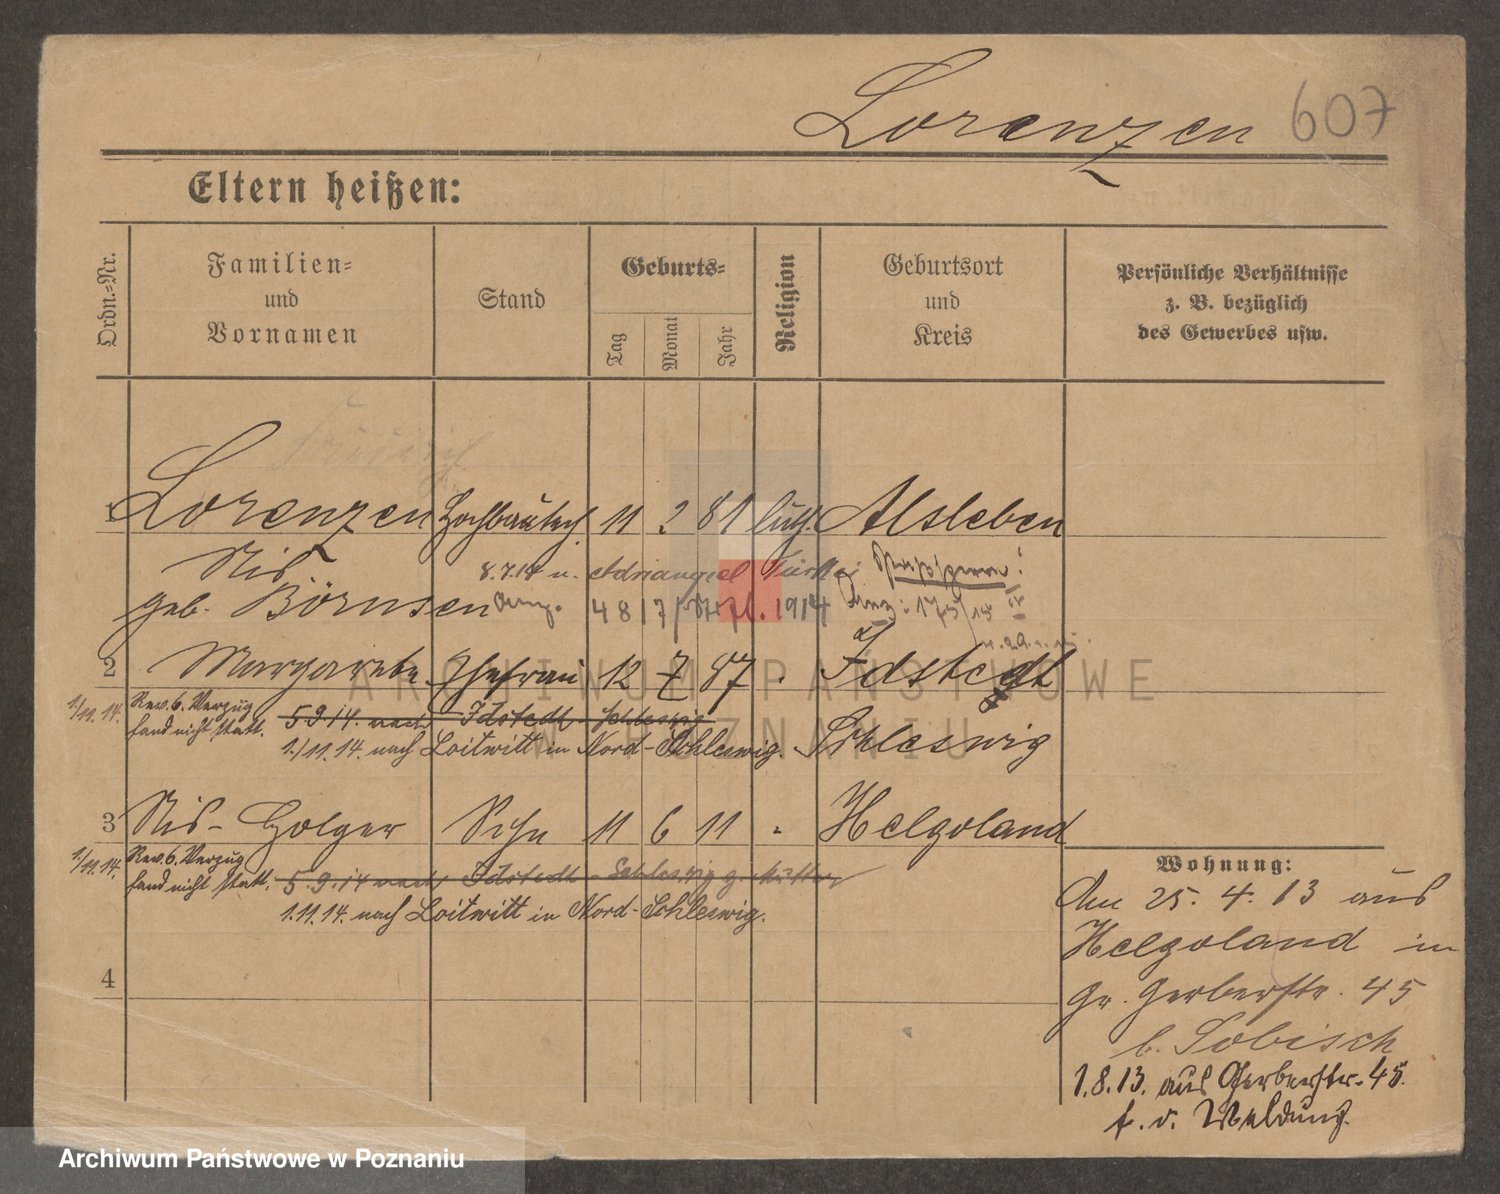 Lorenzen 607
Eltern heißen:
Ordn.-Nr.
Familien-
und
Vornamen
Stand
Geburts-
Tag
Monat
Jahr
Religion
Geburtsort
und
Kreis
Persönliche Verhältnisse
z. B. bezüglich
des Gewerbes usw.
1 Lorenzen Hochbautech. 11 2 81 luth. Alsleben
Nis
8.7.14 n. Adrianopel Türkei
geb. Börnsen
4817 1914
2 Margarete Ehefrau 12 7 87 " Idstedt
1./11.14. Rev. 6. Verzug
fand nicht statt. 5 9 14. nach Idstedt - Schleswig
1./11.14. nach Loitwitt in Nord-Schleswig. Schleswig
3 Nis-Holger Sohn 11 6 11 " Helgoland
1./11.14. Rev. 6. Verzug
fand nicht statt. 5.9.14 nach Idstedt - Schleswig z. Mutter
1.11.14. nach Loitwitt in Nord-Schleswig.
4
Wohnung:
Am 25. 4. 13 aus
Helgoland in
Gr. Gerberstr. 45
b. Sobisch
1.8.13. aus Gerberstr. 45.
f. d. Meldung.
ARCHIWUM PAŃSTWOWE
W POZNANIU
Archiwum Państwowe w Poznaniu